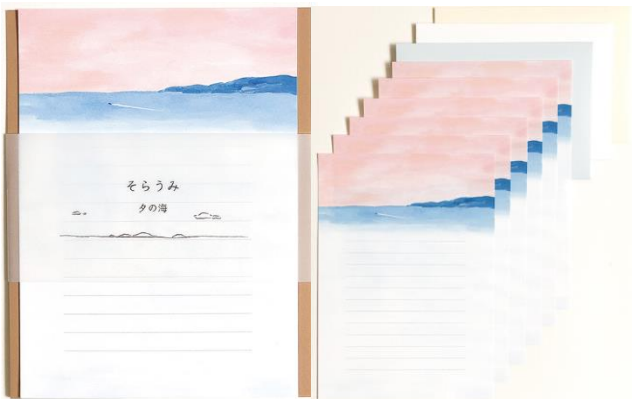 そらうみ
夕の海